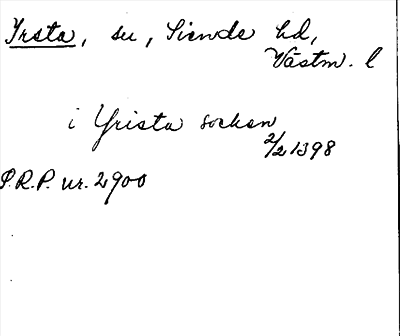 Yrsta, su, Siende hd,
Västm. l
i Yrista socken
2/2 1398
P.R.P. nr. 2900